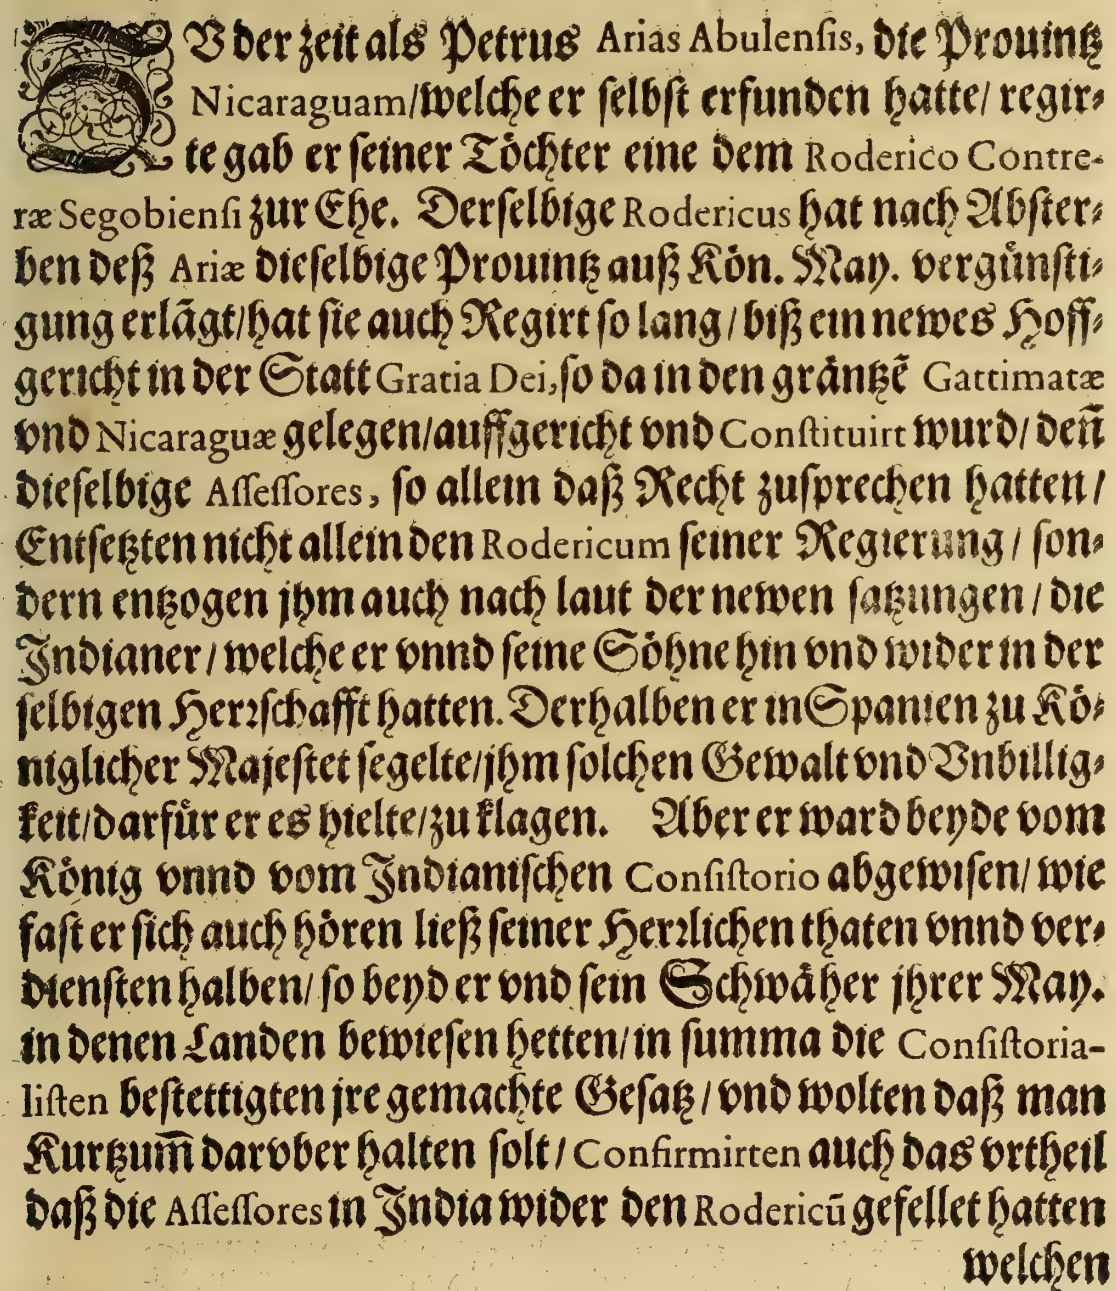 ZV der zeit als Petrus Arias Abulenſis, die Prouintz
Nicaraguam/welche er ſelbſt erfunden hatte/ regir⸗
te gab er ſeiner Töchter eine dem Roderico Contre-
ræ Segobienſi zur Ehe. Derſelbige Rodericus hat nach Abſter⸗
ben deß Ariæ dieſelbige Prouintz auß Kön. May. vergünſti⸗
gung erlägt/hat ſie auch Regirt ſo lang / biß ein newes Hoff⸗
gericht in der Statt Gratia Dei, ſo da in den gräntzē Gattimatæ
vnd Nicaraguæ gelegen/auffgericht vnd Conſtituirt wurd/ deñ
dieſelbige Aſſeſſores, ſo allein daß Recht zuſprechen hatten /
Entſetzten nicht allein den Rodericum ſeiner Regierung / ſon⸗
dern entzogen jhm auch nach laut der newen ſatzungen / die
Indianer / welche er vnnd ſeine Söhne hin vnd wider in der
ſelbigen Herꝛſchafft hatten. Derhalben er in Spanien zu Kö⸗
niglicher Majeſtet ſegelte/jhm ſolchen Gewalt vnd Vnbillig⸗
keit/darfür er es hielte/zu klagen. Aber er ward beyde vom
König vnnd vom Indianiſchen Conſiſtorio abgewiſen/ wie
faſt er ſich auch hören ließ ſeiner Herꝛlichen thaten vnnd ver⸗
dienſten halben/ ſo beyd er vnd ſein Schwäher jhrer May.
in denen Landen bewieſen hetten/ in ſumma die Conſiſtoria-
liſten beſtettigten jre gemachte Geſatz / vnd wolten daß man
Kurtzum̃ darvber halten ſolt / Confirmirten auch das vrtheil
daß die Aſſeſſores in India wider den Rodericū gefellet hatten
welchen